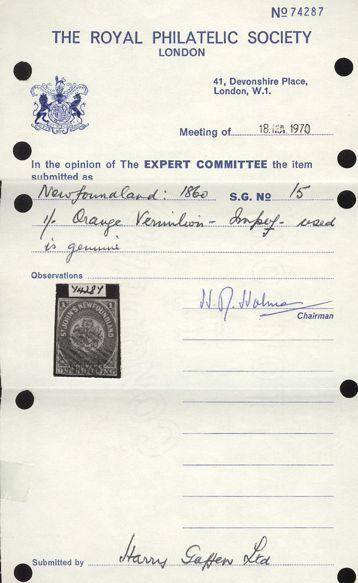 No 74287
THE ROYAL PHILATELIC SOCIETY
LONDON
41, Devonshire Place,
London, W.1.
Meeting of 18. 1970
In the opinion of The EXPERT COMMITTEE the item
submitted as
Newfoundland: 1860 S.G. No 15
1/- Orange Vermilion - Imperf - used
is genuine
Observations
74287
ST JOHN'S NEWFOUNDLAND
Chairman
Submitted by Harry Gaffen Ltd